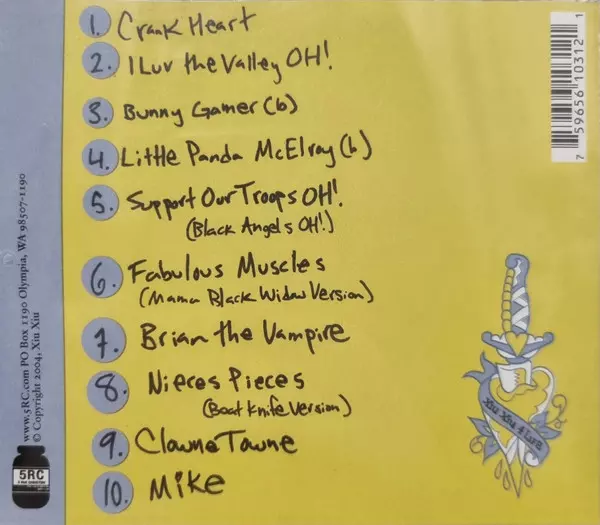 1. Crank Heart
2. I Luv the Valley OH!
3. Bunny Gamer (b)
4. Little Panda McElroy (b)
5. Support Our Troops OH!
(Black Angels OH!)
6. Fabulous Muscles
(Mama Black Widow Version)
7. Brian the Vampire
8. Nieces Pieces
(Boat Knife Version)
9. Clowne Towne
10. Mike
7 59656 10312 1
Xiu Xiu 4 Life
www.5RC.com PO Box 1190 Olympia, WA 98507-1190
© Copyright 2004, Xiu Xiu
5RC